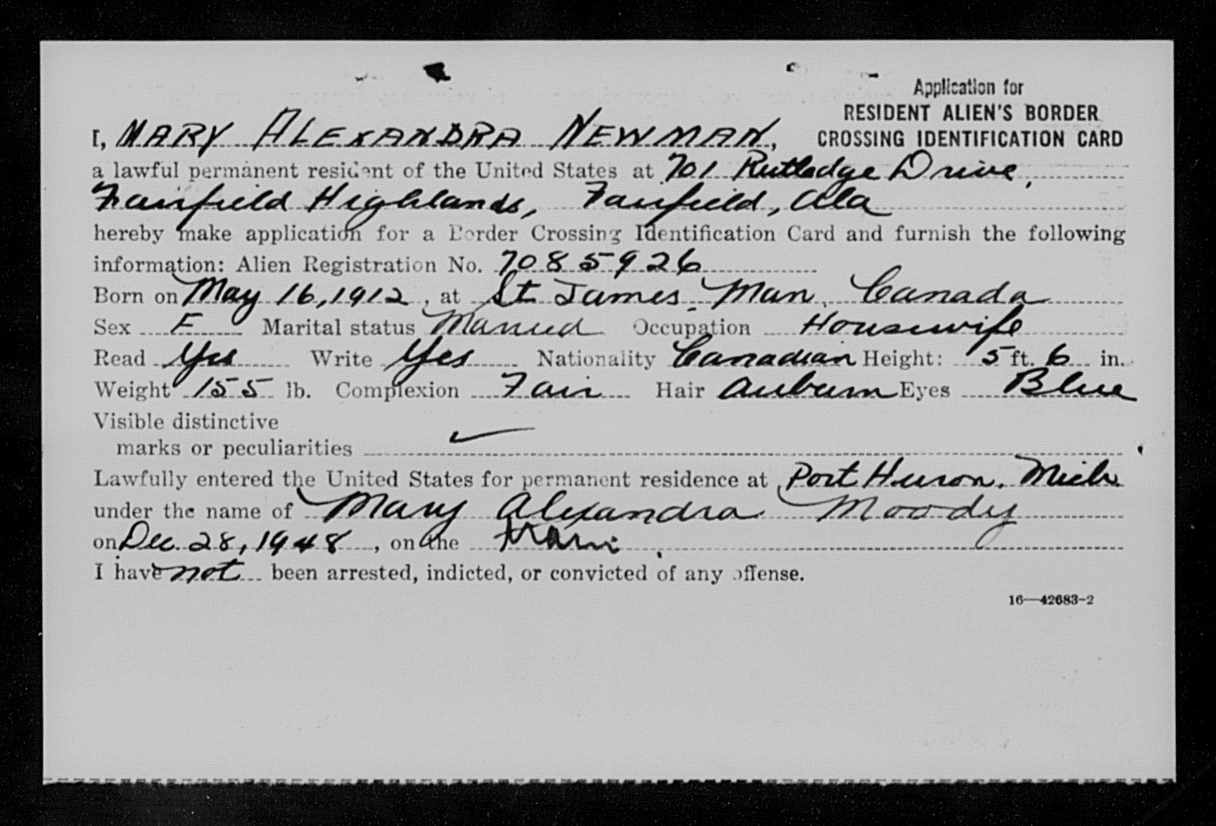 Application for
RESIDENT ALIEN'S BORDER
CROSSING IDENTIFICATION CARD
I, MARY ALEXANDRA NEWMAN,
a lawful permanent resident of the United States at 701 Rutledge Drive,
Fairfield Highlands, Fairfield, Ala
hereby make application for a Border Crossing Identification Card and furnish the following
information: Alien Registration No. 7085926
Born on May 16, 1912, at St. James, Man, Canada
Sex F Marital status Married Occupation Housewife
Read Yes Write Yes Nationality Canadian Height: 5 ft. 6 in.
Weight 155 lb. Complexion Fair Hair Auburn Eyes Blue
Visible distinctive
marks or peculiarities ✓
Lawfully entered the United States for permanent residence at Port Huron, Mich
under the name of Mary Alexandra Moody
on Dec. 28, 1948, on the train.
I have not been arrested, indicted, or convicted of any offense.
16—42683-2